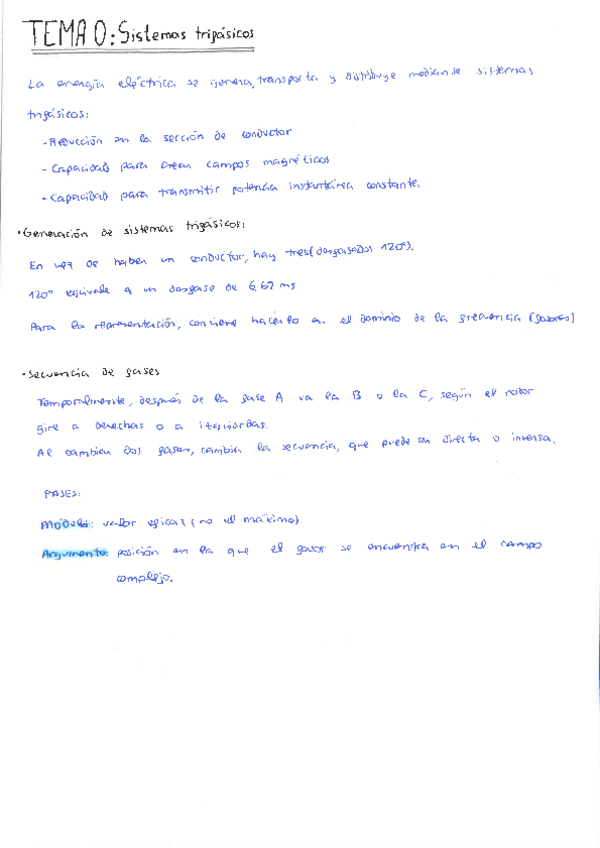 TEMA 0: Sistemas trifásicos
La energía eléctrica se genera, transporta y distribuye mediante sistemas
trifásicos:
- Reducción en la sección de conductor
- Capacidad para crear campos magnéticos
- Capacidad para transmitir potencia instantánea constante.
• Generación de sistemas trifásicos:
En vez de haber un conductor, hay tres (desfasados 120º).
120º equivale a un desfase de 6,67 ms
Para la representación, conviene hacerlo en el dominio de la frecuencia (fasores)
• Secuencia de fases
Temporalmente, después de la fase A va la B o la C, según el rotor
gire a derechas o a izquierdas.
Al cambiar dos fases, cambia la secuencia, que puede ser directa o inversa.
FASES:
Módulo: valor eficaz (no el máximo)
Argumento: posición en la que el fasor se encuentra en el campo
complejo.